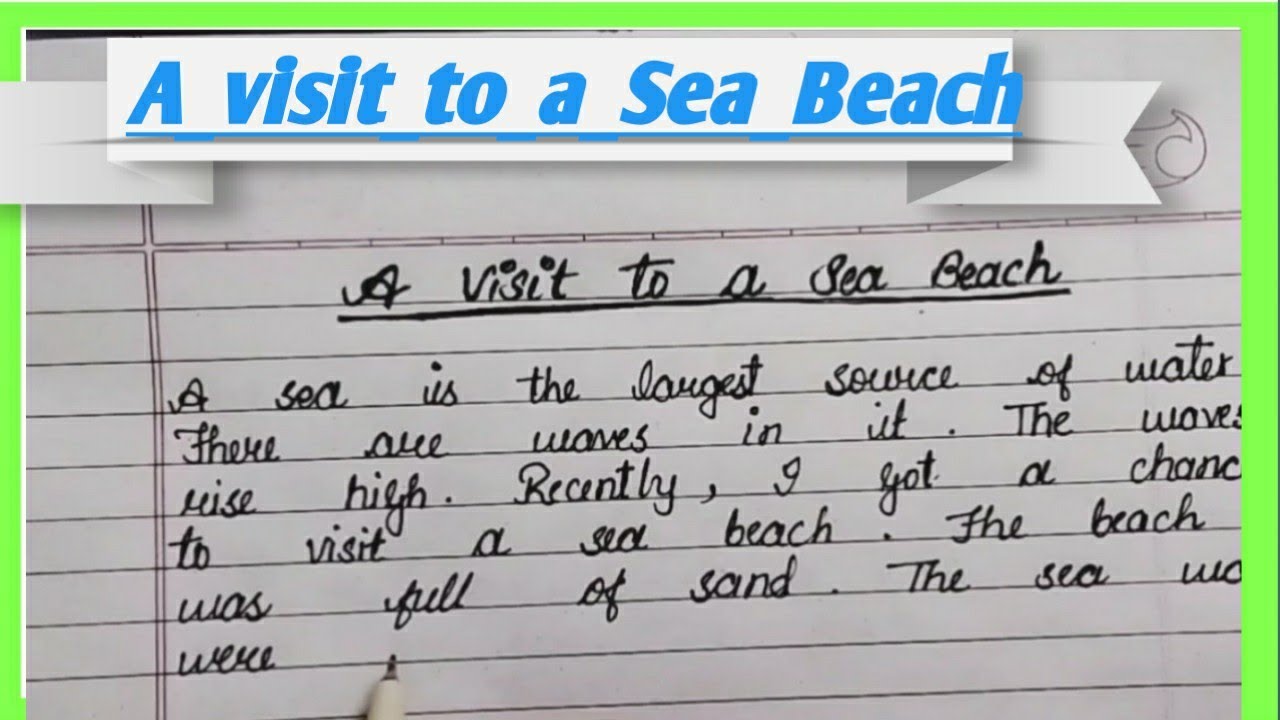 A visit to a Sea Beach
A Visit to a Sea Beach
A sea is the largest source of water
There are waves in it. The waves
rise high. Recently, I got a chanc
to visit a sea beach. The beach
was full of sand. The sea wa
were